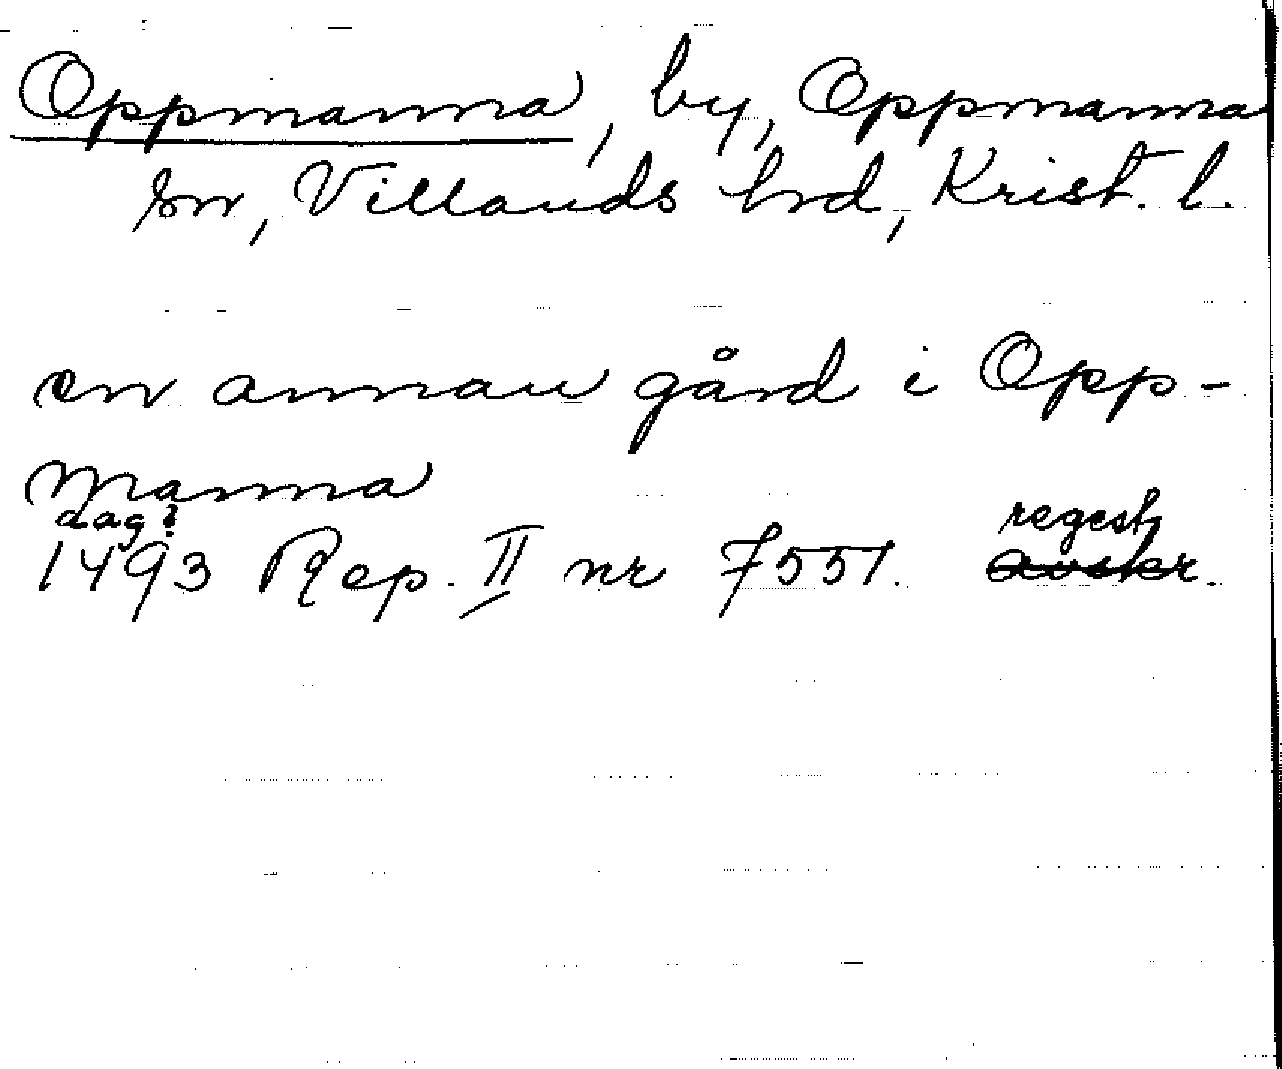 Oppmanna, by, Oppmanna
sn, Villands hrd, Krist. l.
en annan gård i Opp-
manna
dag?
1493 Rep. II nr 7551. regest
avskr.